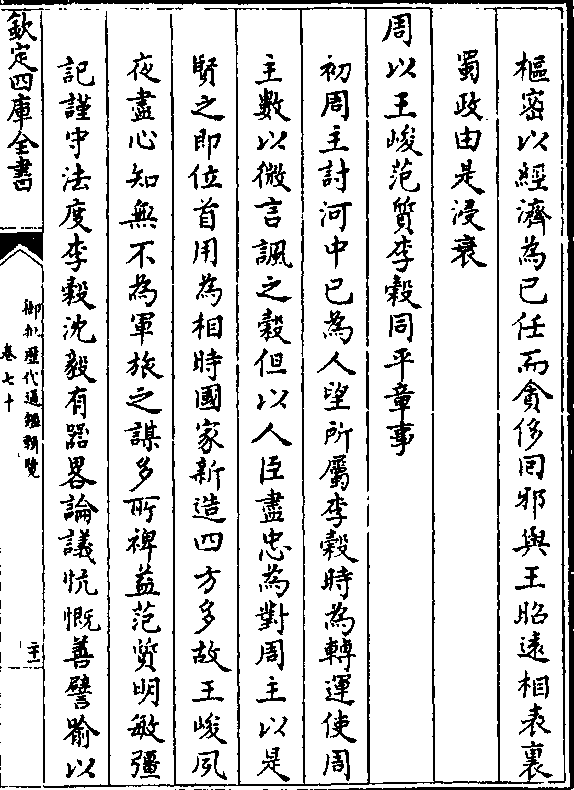 樞密以經濟為已任而貪侈回邪與王昭遠相表裏
蜀政由是浸衰
周以王峻范質李穀同平章事
初周主討河中已為人望所屬李穀時為轉運使周
主數以微言諷之穀但以人臣盡忠為對周主以是
賢之即位首用為相時國家新造四方多故王峻夙
夜盡心知無不為軍旅之謀多所裨益范質明敏彊
記謹守法度李穀沈毅有器畧論議忼慨善譬喻以
欽定四庫全書
御批歷代通鑑輯覽
卷七十
二十一